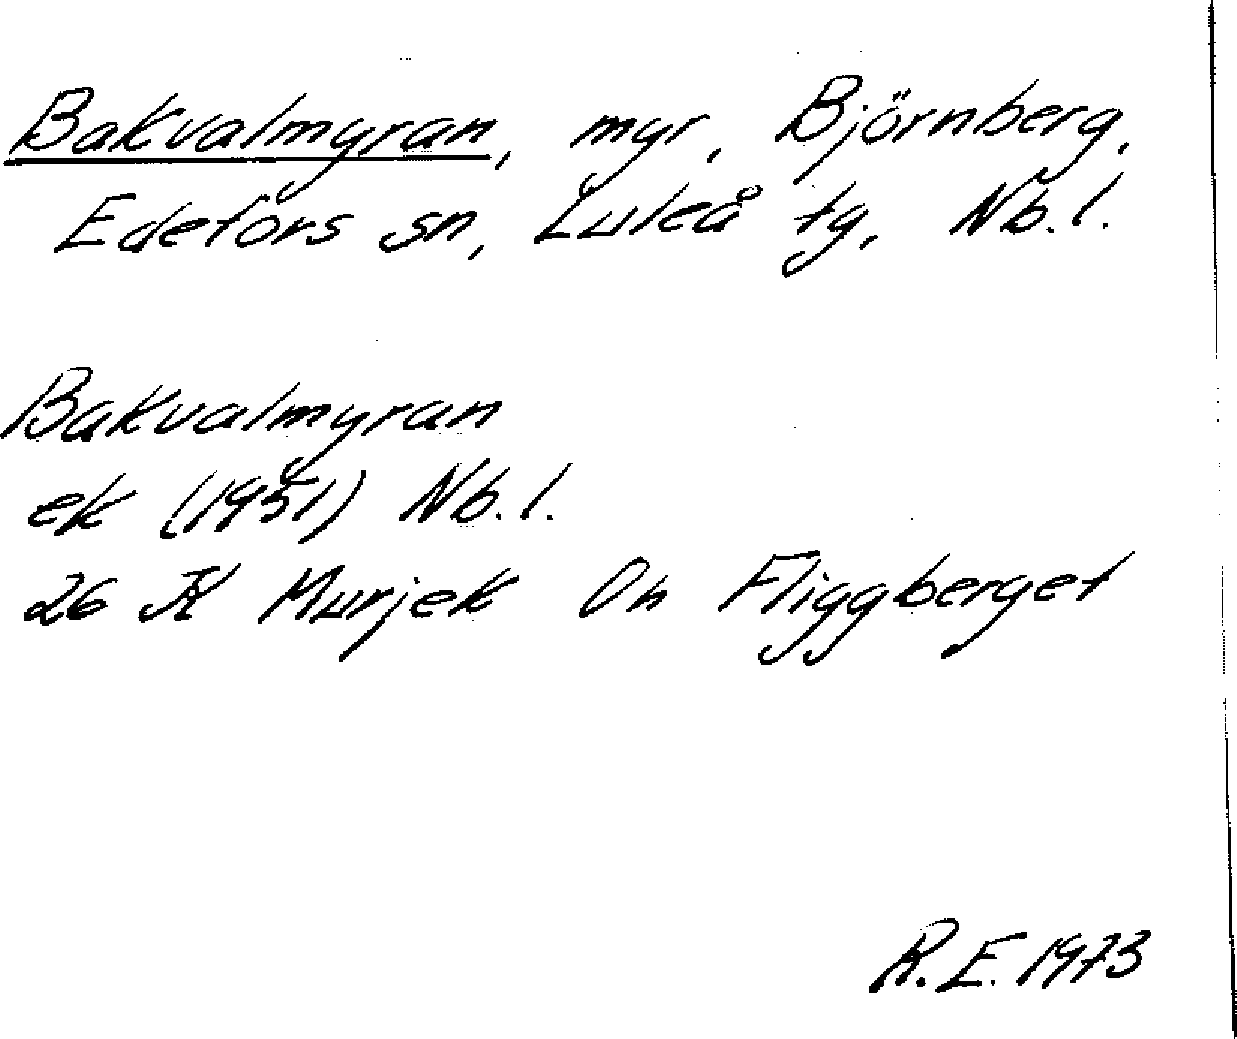 Bakvalmyran, myr, Björnberg,
Edefors sn, Luleå tg, Nb.l.
Bakvalmyran
ek (1951) Nb.l.
26 K Murjek Oh Fliggberget
R.E. 1973